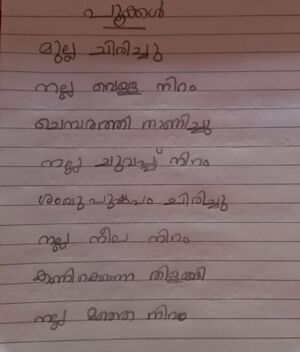 പൂക്കൾ
മുല്ല ചിരിച്ചു
നല്ല വെള്ള നിറം
ചെമ്പരത്തി നാണിച്ചു
നല്ല ചുവപ്പ് നിറം
ശംഖുപുഷ്പം ചിരിച്ചു
നല്ല നീല നിറം
കണിക്കൊന്ന തിളങ്ങി
നല്ല മഞ്ഞ നിറം